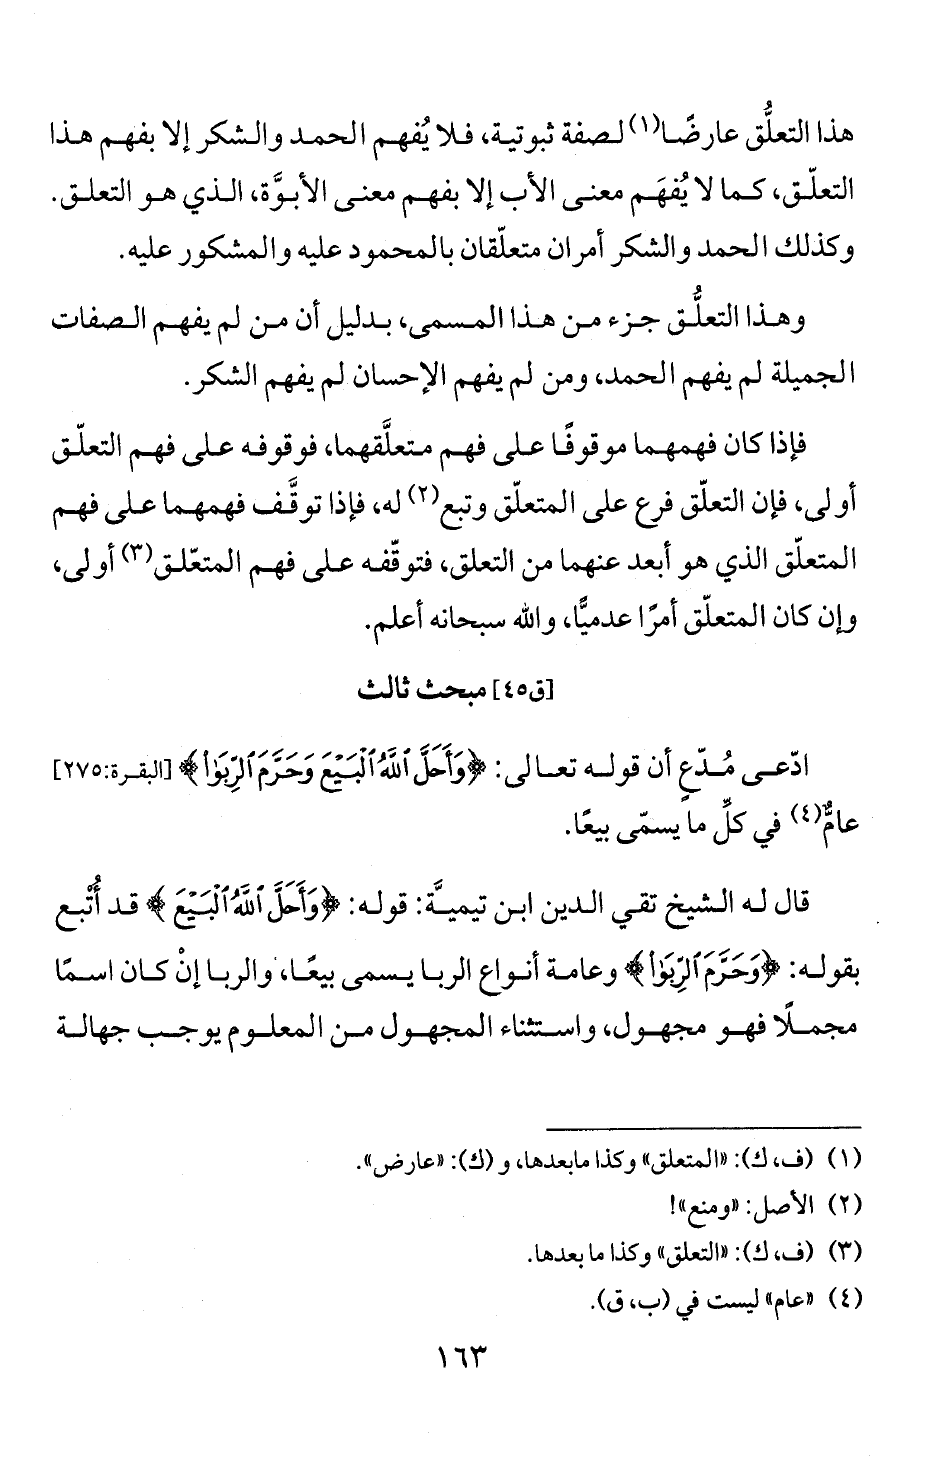 هذا التعلُّق عارضًا(١) لصفة ثبوتية، فلا يُفهم الحمد والشكر إلا بفهم هذا
التعلّق، كما لا يُفهَم معنى الأب إلا بفهم معنى الأبوَّة، الذي هو التعلق.
وكذلك الحمد والشكر أمران متعلّقان بالمحمود عليه والمشكور عليه.
وهذا التعلُّق جزء من هذا المسمى، بدليل أن من لم يفهم الصفات
الجميلة لم يفهم الحمد، ومن لم يفهم الإحسان لم يفهم الشكر.
فإذا كان فهمهما موقوفًا على فهم متعلَّقهما، فوقوفه على فهم التعلّق
أولى، فإن التعلّق فرع على المتعلّق وتبع(٢) له، فإذا توقَّف فهمهما على فهم
المتعلّق الذي هو أبعد عنهما من التعلق، فتوقّفه على فهم المتعّلق(٣) أولى،
وإن كان المتعلّق أمرًا عدميًّا، والله سبحانه أعلم.
[ق٤٥] مبحث ثالث
ادّعى مُدّعٍ أن قوله تعالى: ﴿وَأَحَلَّ ٱللَّهُ ٱلْبَيْعَ وَحَرَّمَ ٱلرِّبَوٰا۟﴾ [البقرة:٢٧٥]
عامٌّ(٤) في كلِّ ما يسمّى بيعًا.
قال له الشيخ تقي الدين ابن تيميَّة: قوله: ﴿وَأَحَلَّ ٱللَّهُ ٱلْبَيْعَ﴾ قد أُتْبع
بقوله: ﴿وَحَرَّمَ ٱلرِّبَوٰا۟﴾ وعامة أنواع الربا يسمى بيعًا، والربا إنْ كان اسمًا
مجملًا فهو مجهول، واستثناء المجهول من المعلوم يوجب جهالة
(١) (ف، ك): «المتعلق» وكذا مابعدها، و(ك): «عارض».
(٢) الأصل: «ومنع»!
(٣) (ف، ك): «التعلق» وكذا ما بعدها.
(٤) «عام» ليست في (ب، ق).
١٦٣